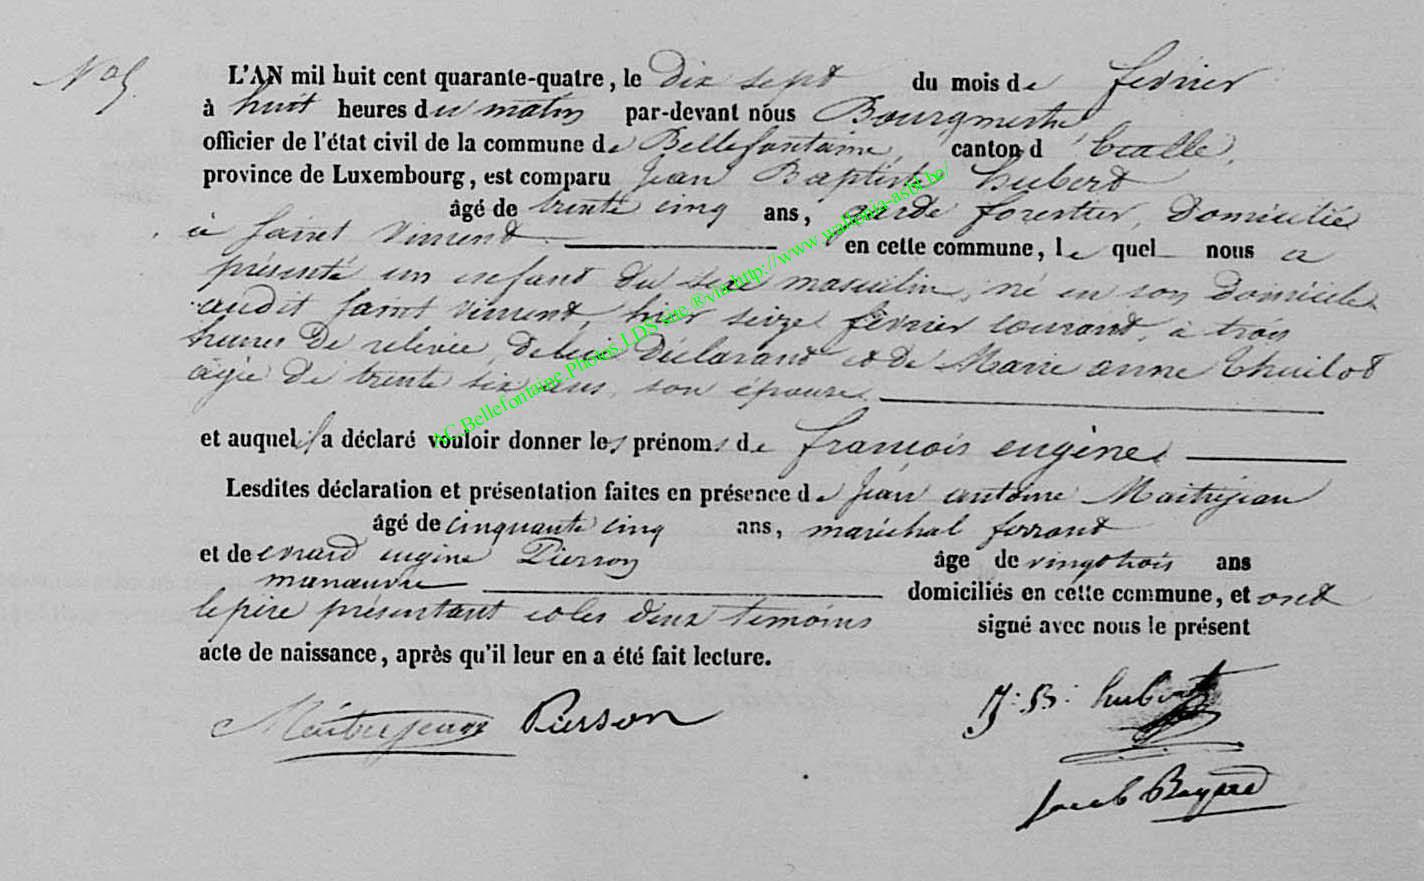 N° 5.
L'AN mil huit cent quarante-quatre, le dix sept du mois de fevrier
à huit heures du matin par-devant nous Bourgmestre
officier de l'état civil de la commune de Bellefontaine, canton d'Etalle,
province de Luxembourg, est comparu Jean Baptiste hubert
âgé de trente cinq ans, garde forestier, domicilié
à Saint Vincent en cette commune, le quel nous a
présenté un enfant du sexe masculin, né en son domicile
audit Saint Vincent, hier seize fevrier courant, à trois
heures de relevée, de lui déclarant et de Marie anne thuilot
agée de trente six ans, son épouse
et auquel il a déclaré vouloir donner les prénoms de francois eugène
Lesdites déclaration et présentation faites en présence de Jean antoine Maitrejean
âgé de cinquante cinq ans, maréchal ferrant
et de evrard eugène Pierson âge de vingt trois ans
manœuvre domiciliés en cette commune, et ont
le père présentant et les deux témoins signé avec nous le présent
acte de naissance, après qu'il leur en a été fait lecture.
Maitrejean Pierson J: B: hubert
Jacob Bayard
AC.Bellefontaine.Photos.LDS.site.®via http://www.wallonia-asbl.be/